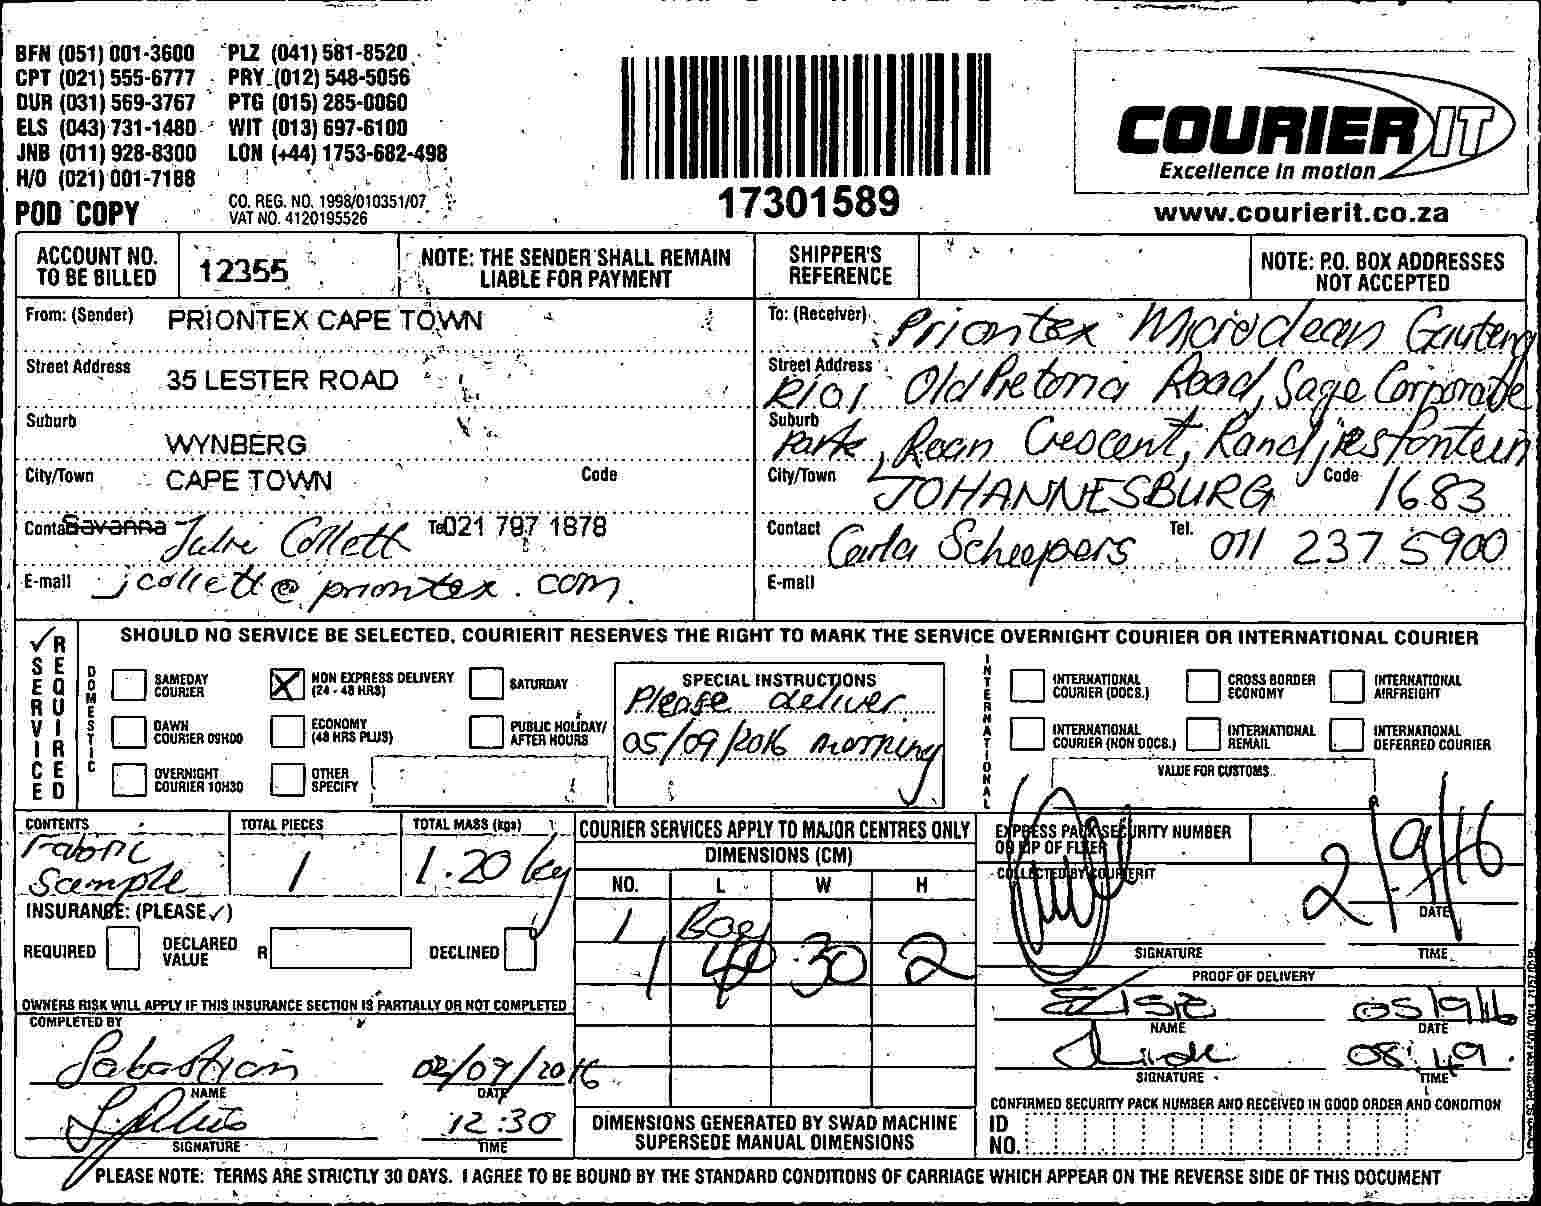 BFN (051) 001-3600 PLZ (041) 581-8520
CPT (021) 555-6777 PRY (012) 548-5056
DUR (031) 569-3767 PTG (015) 285-0060
ELS (043) 731-1480 WIT (013) 697-6100
JNB (011) 928-8300 LON (+44) 1753-682-498
H/O (021) 001-7188
POD COPY
CO. REG. NO. 1998/010351/07
VAT NO. 4120195526
17301589
COURIER IT
Excellence in motion
www.courierit.co.za
ACCOUNT NO. TO BE BILLED 12355
NOTE: THE SENDER SHALL REMAIN LIABLE FOR PAYMENT
SHIPPER'S REFERENCE
NOTE: P.O. BOX ADDRESSES NOT ACCEPTED
From: (Sender) PRIONTEX CAPE TOWN
Street Address 35 LESTER ROAD
Suburb WYNBERG
City/Town CAPE TOWN Code
Savanna Julie Collett Tel 021 797 1878
E-mail jcollett@priontex.com.
To: (Receiver) Priontex Microclean Gauteng
Street Address R101 Old Pretoria Road, Sage Corporate
Suburb Park, Roan Crescent, Randjiesfontein
City/Town JOHANNESBURG Code 1683
Contact Carla Scheepers Tel. 011 237 5900
E-mail
SERVICE REQUIRED
SHOULD NO SERVICE BE SELECTED, COURIERIT RESERVES THE RIGHT TO MARK THE SERVICE OVERNIGHT COURIER OR INTERNATIONAL COURIER
DOMESTIC
SAMEDAY COURIER
NON EXPRESS DELIVERY (24 - 48 HRS)
SATURDAY
DAWN COURIER 09H00
ECONOMY (48 HRS PLUS)
PUBLIC HOLIDAY/ AFTER HOURS
OVERNIGHT COURIER 10H30
OTHER SPECIFY
SPECIAL INSTRUCTIONS
Please deliver
05/09/2016 morning
INTERNATIONAL
INTERNATIONAL COURIER (DOCS.)
CROSS BORDER ECONOMY
INTERNATIONAL AIRFREIGHT
INTERNATIONAL COURIER (NON DOCS.)
INTERNATIONAL REMAIL
INTERNATIONAL DEFERRED COURIER
VALUE FOR CUSTOMS
CONTENTS Fabric Sample
TOTAL PIECES 1
TOTAL MASS (kgs) 1.20 kg
INSURANCE: (PLEASE ✓)
REQUIRED DECLARED VALUE R DECLINED
OWNERS RISK WILL APPLY IF THIS INSURANCE SECTION IS PARTIALLY OR NOT COMPLETED
COMPLETED BY
Sabastian 02/09/2016
NAME DATE
12:30
SIGNATURE TIME
COURIER SERVICES APPLY TO MAJOR CENTRES ONLY
DIMENSIONS (CM)
NO. L W H
1 Bag
1 40 30 2
DIMENSIONS GENERATED BY SWAD MACHINE
SUPERSEDE MANUAL DIMENSIONS
EXPRESS PACK SECURITY NUMBER
ON LIP OF FLYER
COLLECTED BY COURIERIT
2/9/16
DATE
SIGNATURE TIME
PROOF OF DELIVERY
Elsie 05/9/16
NAME DATE
08:49
SIGNATURE TIME
CONFIRMED SECURITY PACK NUMBER AND RECEIVED IN GOOD ORDER AND CONDITION
ID NO.
PLEASE NOTE: TERMS ARE STRICTLY 30 DAYS. I AGREE TO BE BOUND BY THE STANDARD CONDITIONS OF CARRIAGE WHICH APPEAR ON THE REVERSE SIDE OF THIS DOCUMENT